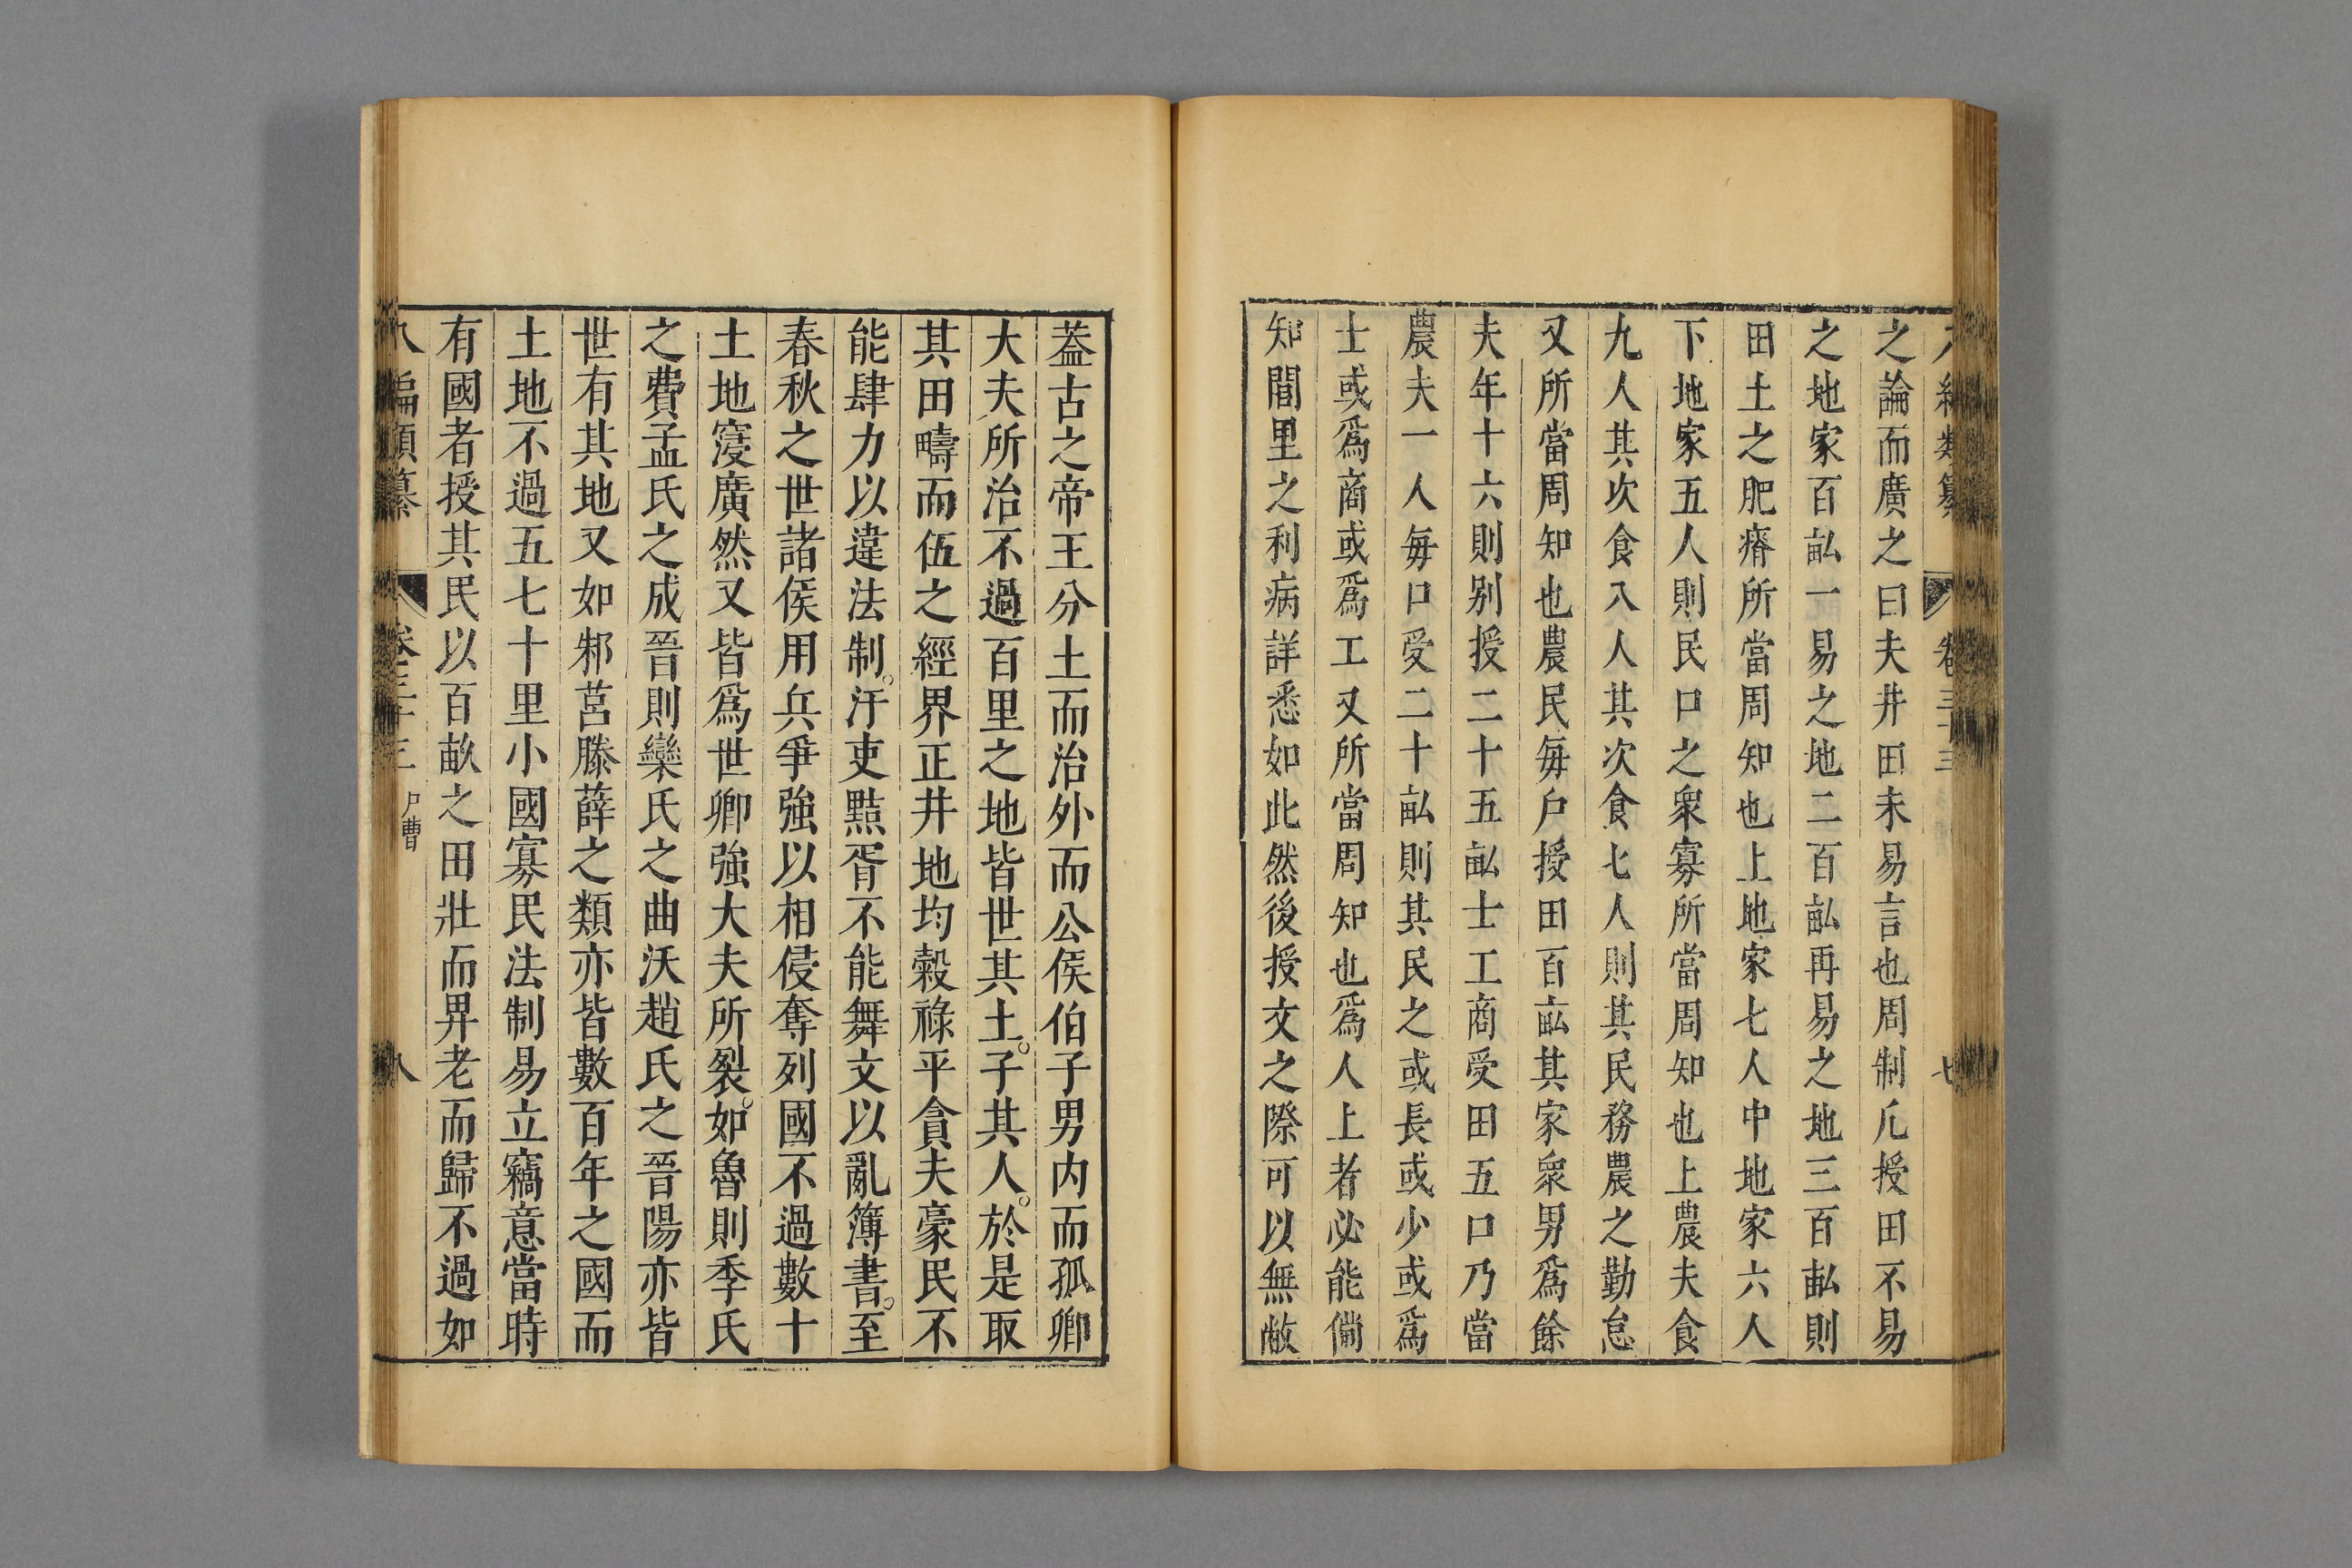 類纂
卷三十三
七
之論而廣之曰夫井田未易言也周制凢授田不易
之地家百畆一易之地二百畆再易之地三百畆則
田土之肥瘠所當周知也上地家七人中地家六人
下地家五人則民口之衆寡所當周知也上農夫食
九人其次食八人其次食七人則其民務農之勤怠
又所當周知也農民每户授田百畆其家衆男爲餘
夫年十六則别授二十五畆士工商受田五口乃當
農夫一人每口受二十畆則其民之或長或少或爲
士或爲商或爲工又所當周知也爲人上者必能備
知閭里之利病詳悉如此然後授文之際可以無敝
葢古之帝王分土而治外而公侯伯子男内而孤卿
大夫所治不過百里之地皆世其土。子其人。於是取
其田疇而伍之經界正井地均穀祿平貪夫豪民不
能肆力以違法制。汙吏黠胥不能舞文以亂簿書。至
春秋之世諸侯用兵爭強以相侵奪列國不過數十
土地寖廣然又皆爲世卿強大夫所裂。如魯則季氏
之費孟氏之成晉則欒氏之曲沃趙氏之晉陽亦皆
世有其地又如邾莒滕薛之類亦皆數百年之國而
土地不過五七十里小國寡民法制易立竊意當時
有國者授其民以百畝之田壯而畀老而歸不過如
八編類纂
卷三十三
户曹
八